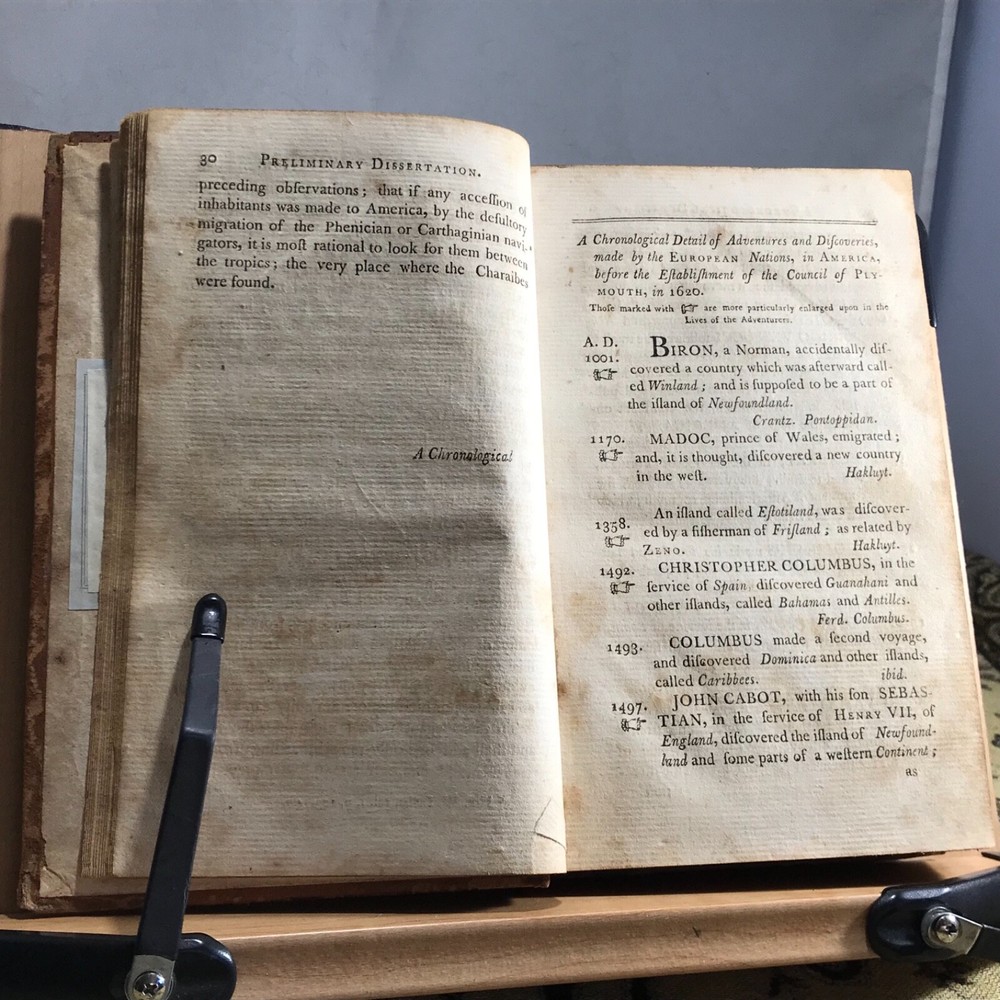 30 PRELIMINARY DISSERTATION.
preceding obſervations; that if any acceſſion of
inhabitants was made to America, by the deſultory
migration of the Phenician or Carthaginian navi-
gators, it is moſt rational to look for them between
the tropics; the very place where the Charaibes
were found.
A Chronological
A Chronological Detail of Adventures and Diſcoveries,
made by the EUROPEAN Nations, in AMERICA,
before the Eſtabliſhment of the Council of PLY-
MOUTH, in 1620.
Thoſe marked with ☞ are more particularly enlarged upon in the
Lives of the Adventurers.
A. D.
1001. BIRON, a Norman, accidentally diſ-
☞ covered a country which was afterward call-
ed Winland; and is ſuppoſed to be a part of
the iſland of Newfoundland.
Crantz. Pontoppidan.
1170. MADOC, prince of Wales, emigrated;
☞ and, it is thought, diſcovered a new country
in the weſt. Hakluyt.
An iſland called Eſtotiland, was diſcover-
1358. ed by a fiſherman of Friſland; as related by
☞ ZENO. Hakluyt.
1492. CHRISTOPHER COLUMBUS, in the
☞ ſervice of Spain, diſcovered Guanahani and
other iſlands, called Bahamas and Antilles.
Ferd. Columbus.
1493. COLUMBUS made a ſecond voyage,
and diſcovered Dominica and other iſlands,
called Caribbees. ibid.
1497. JOHN CABOT, with his ſon SEBAS-
☞ TIAN, in the ſervice of HENRY VII, of
England, diſcovered the iſland of Newfound-
land and ſome parts of a weſtern Continent;
as